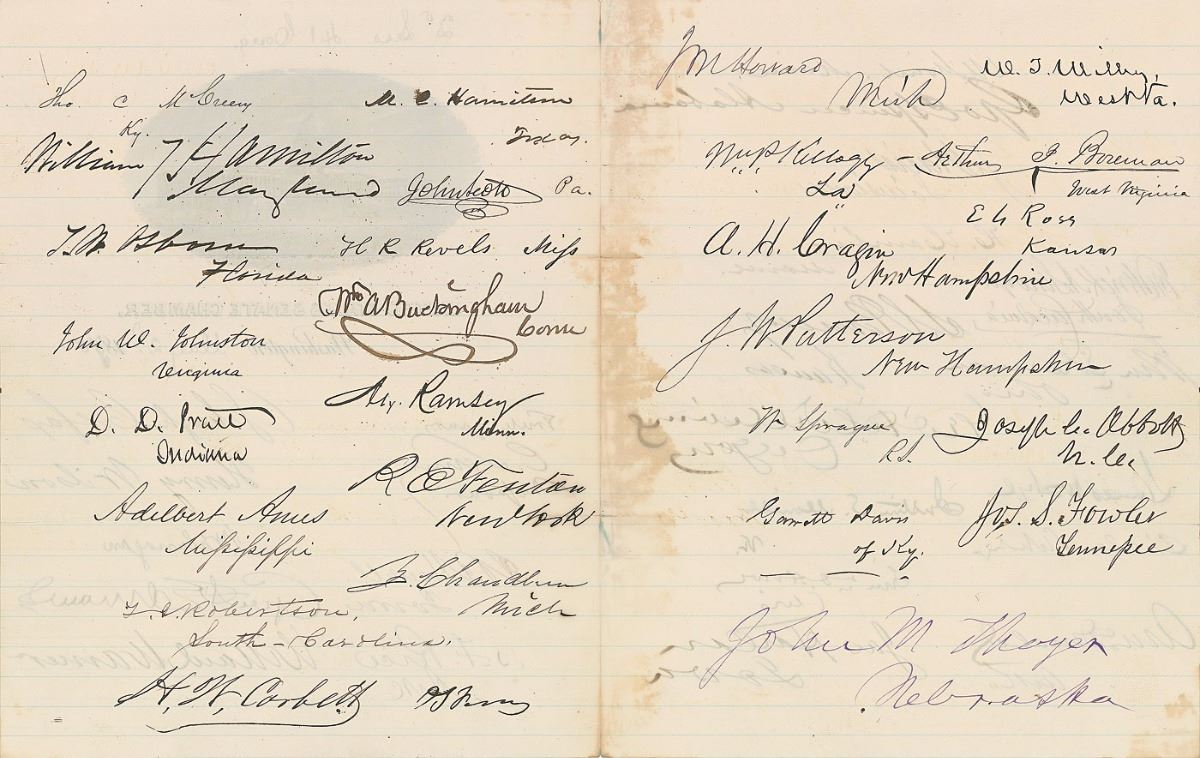 Tho C McCreery
Ky.
M. C. Hamilton
Texas.
William T Hamilton
Maryland
John Scott Pa.
T. W. Osborn
Florida
H R Revels Miss
Wm A Buckingham
Conn
John W. Johnston
Virginia
Alx. Ramsey
Minn.
D. D. Pratt
Indiana
R E Fenton
New York
Adelbert Ames
Mississippi
Z. Chandler
Mich
T. J. Robertson,
South-Carolina.
H. W. Corbett
J M Howard
Mich
W. T. Willey,
West Va.
Wm P Kellogg
La
Arthur I. Boreman
West Virginia
E G Ross
Kansas
A. H. Cragin
New Hampshire
J. W. Patterson
New Hampshire
W Sprague
R.I.
Joseph C. Abbott
N. C.
Garrett Davis
of Ky.
Jos. S. Fowler
Tennessee
John M. Thayer
Nebraska
SENATE CHAMBER,
Washington